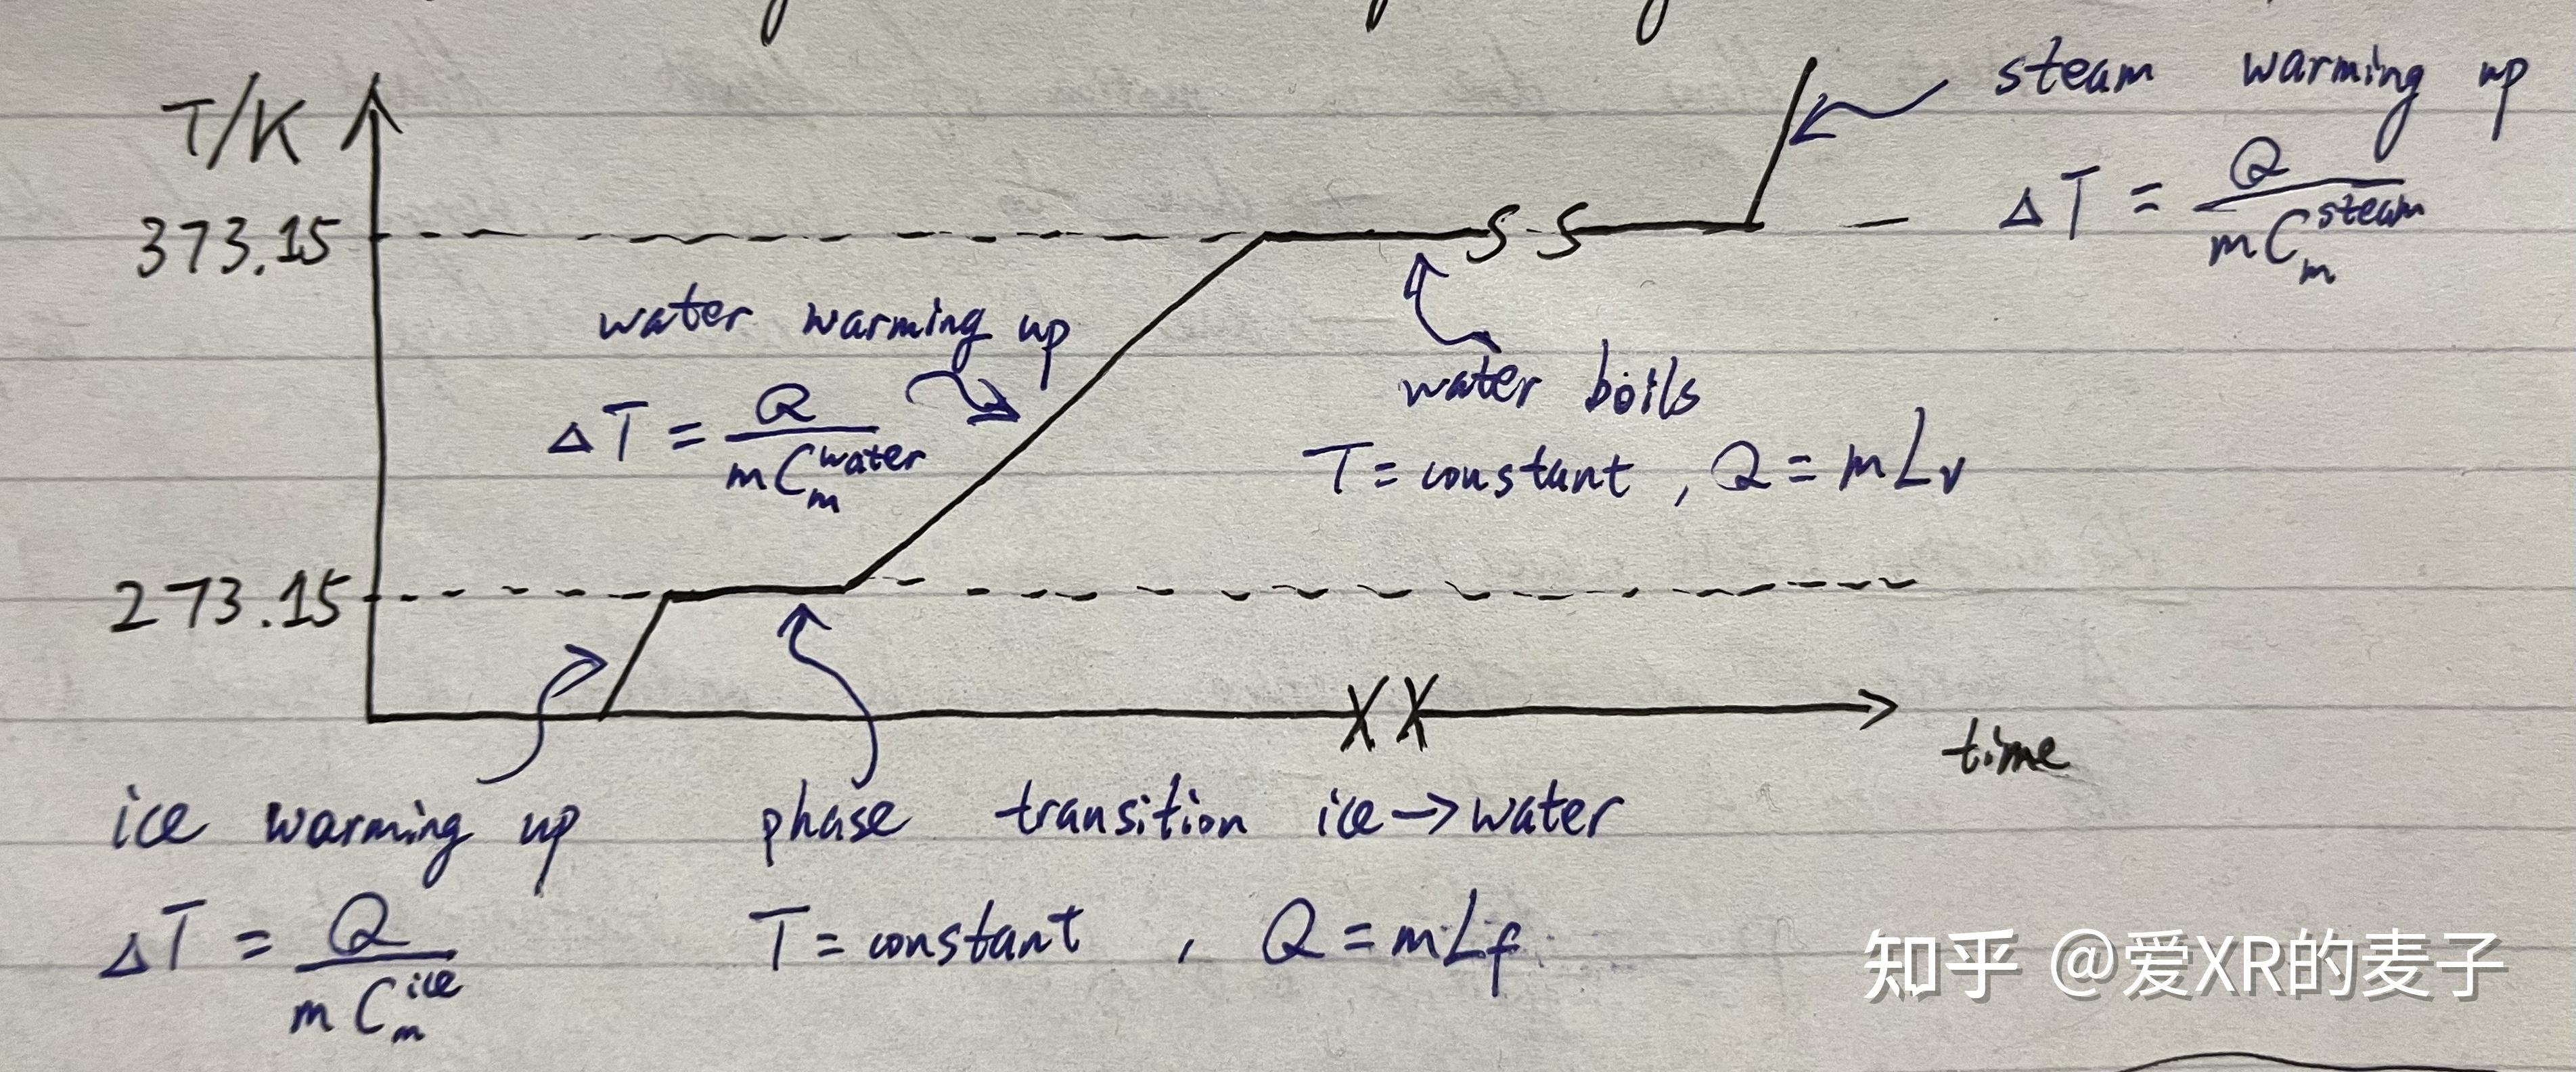 T/K
steam warming up
ΔT = Q / m C_m^steam
373.15
water warming up
ΔT = Q / m C_m^water
water boils
T = constant , Q = m L_v
273.15
time
ice warming up
ΔT = Q / m C_m^ice
phase transition ice → water
T = constant , Q = m L_f
知乎 @爱XR的麦子